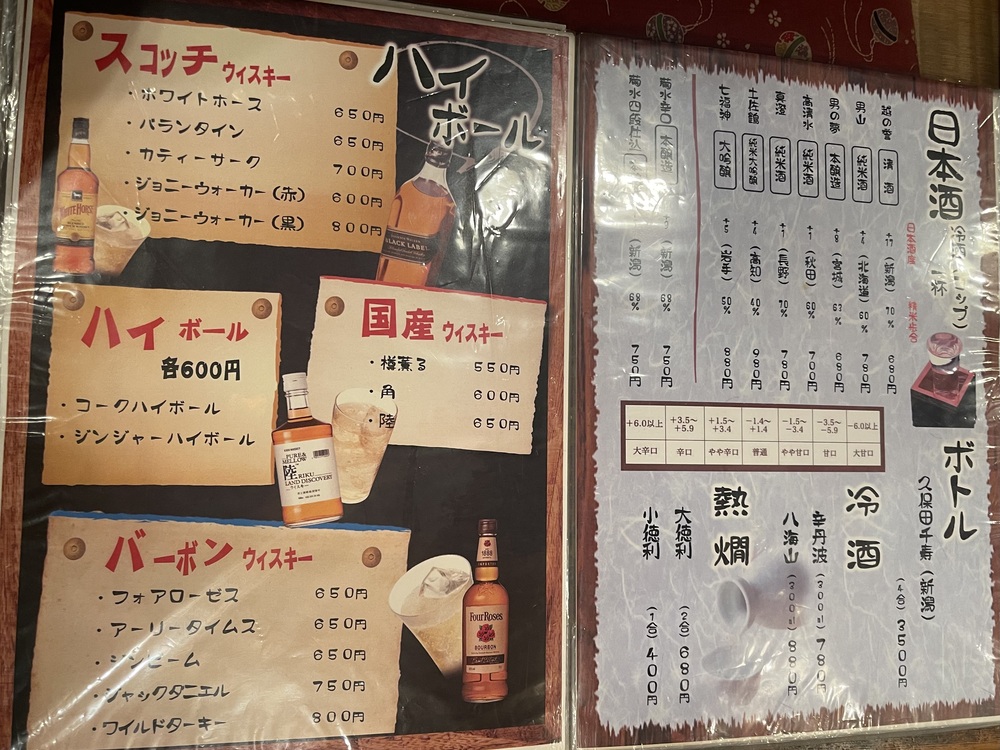 ハイボール
スコッチ ウィスキー
・ホワイトホース 650円
・バランタイン 650円
・カティーサーク 700円
・ジョニーウォーカー(赤) 600円
・ジョニーウォーカー(黒) 800円
WHITE HORSE
BLACK LABEL
ハイボール
各600円
・コークハイボール
・ジンジャーハイボール
国産 ウィスキー
・樽薫る 550円
・角 600円
・陸 650円
PURE&
MELLOW
陸 RIKU
LAND DISCOVERY
バーボン ウィスキー
・フォアローゼス 650円
・アーリータイムス 650円
・ジンビーム 650円
・ジャックダニエル 750円
・ワイルドターキー 800円
1888
Four Roses
BOURBON
日本酒
日本酒度
精米歩合
越の誉 清酒 (新潟) 70% 680円
男山 純米酒 (北海道) 60% 780円
男の夢 本醸造 +8 (宮城) 680円
高清水 純米酒 +1 (秋田) 60% 700円
真澄 純米酒 +1 (長野) 70% 780円
土佐鶴 純米大吟醸 (高知) 40% 980円
七福神 大吟醸 +5 (岩手) 50% 880円
菊水辛口 本醸造 (新潟) 68% 750円
菊水四段仕込 (新潟) 68% 750円
+6.0以上 +3.5~+5.9 +1.5~+3.4 -1.4~+1.4 -1.5~-3.4 -3.5~-5.9 -6.0以上
大辛口 辛口 やや辛口 普通 やや甘口 甘口 大甘口
ボトル
久保田千寿(新潟)
(4合) 3500円
冷酒
辛丹波 (300ml) 780円
八海山 (300ml) 880円
熱燗
大徳利 (2合) 680円
小徳利 (1合) 400円